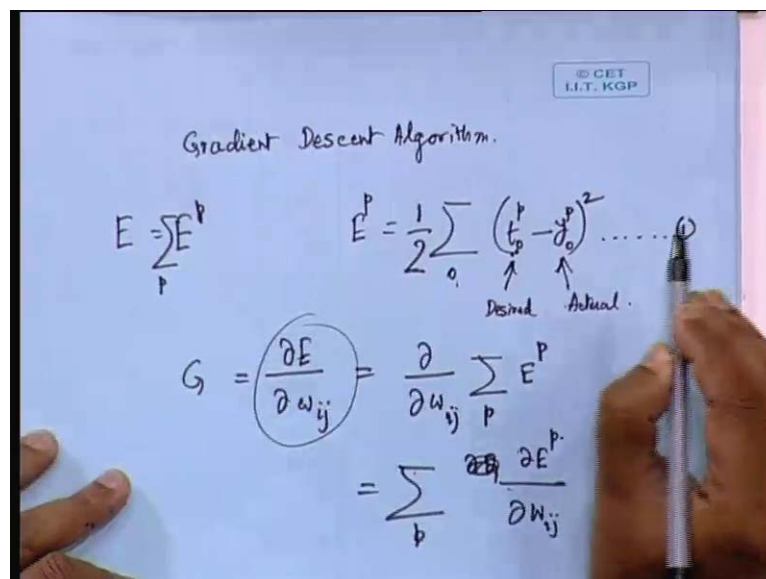 © CET
I.I.T. KGP
Gradient Descent Algorithm.
E = ∑_p E^p    E^p = 1/2 ∑_o (t_p^p − y_o^p)^2 ...... ①
Desired    Actual.
G = ∂E/∂w_ij = ∂/∂w_ij ∑_p E^p
= ∑_p ∂E^p/∂w_ij